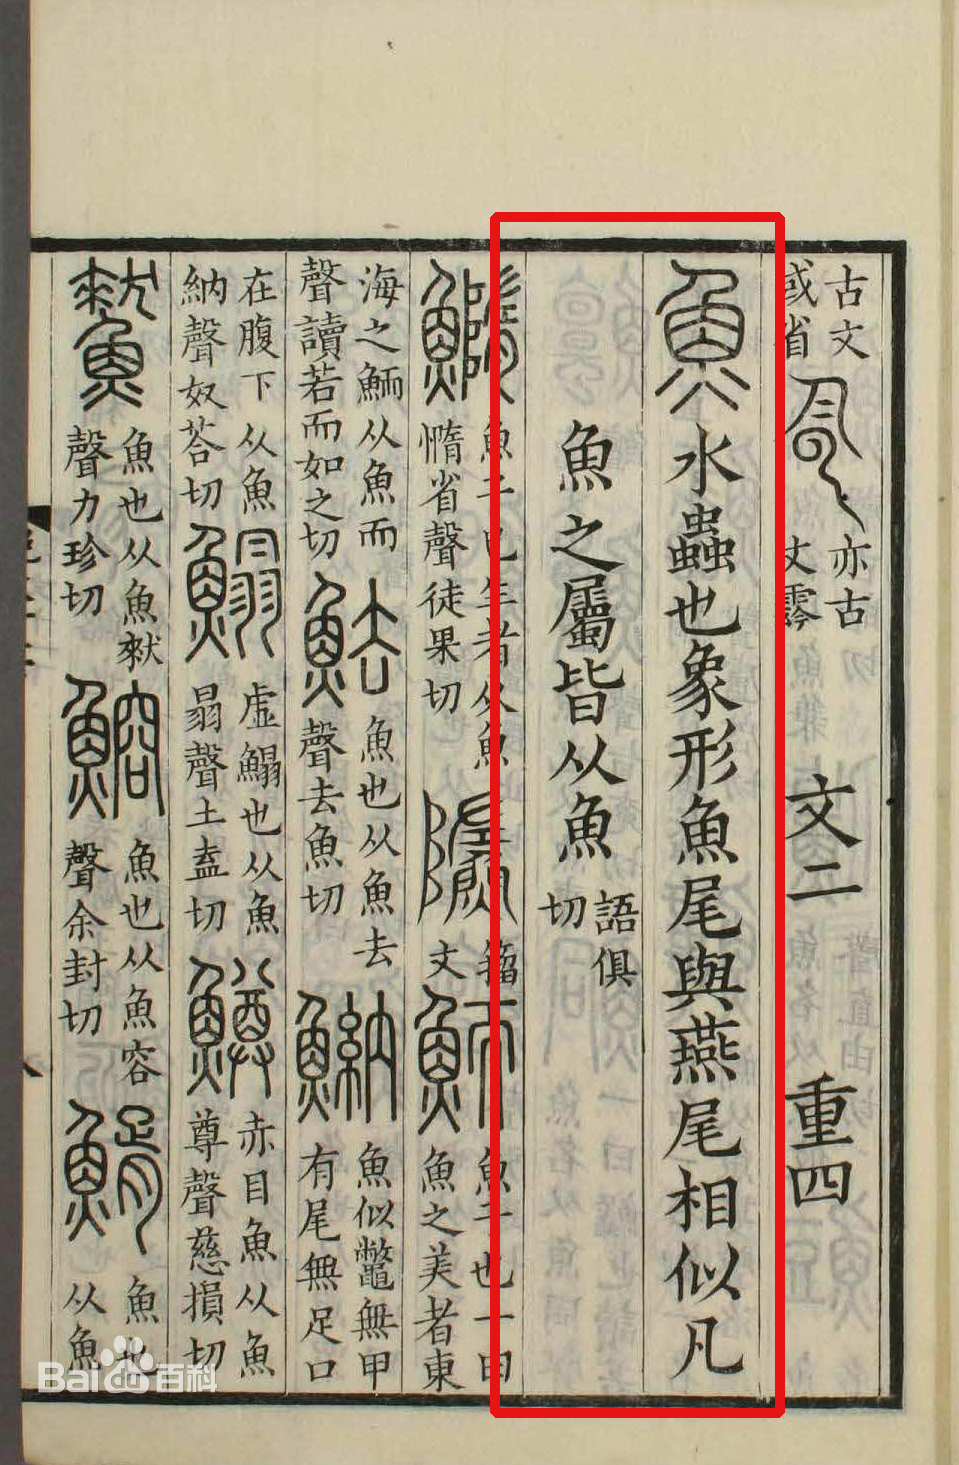 古文
或省
亦古
文雩
文二
重四
魚水蟲也象形魚尾與燕尾相似凡
魚之屬皆从魚
語俱
切
鰖魚子已生者从魚
惰省聲徒果切
籒
文
鮞魚子也一曰
魚之美者東
海之鮞从魚而
聲讀若而如之切
魼魚也从魚去
聲去魚切
魶魚似鼈無甲
有尾無足口
在腹下从魚
納聲奴荅切
鰨虛鰨也从魚
𦐇聲土盍切
鱒赤目魚从魚
尊聲慈損切
魚也从魚㷠
聲力珍切
鰫魚也从魚容
聲余封切
魚也
从魚
Baidu百科